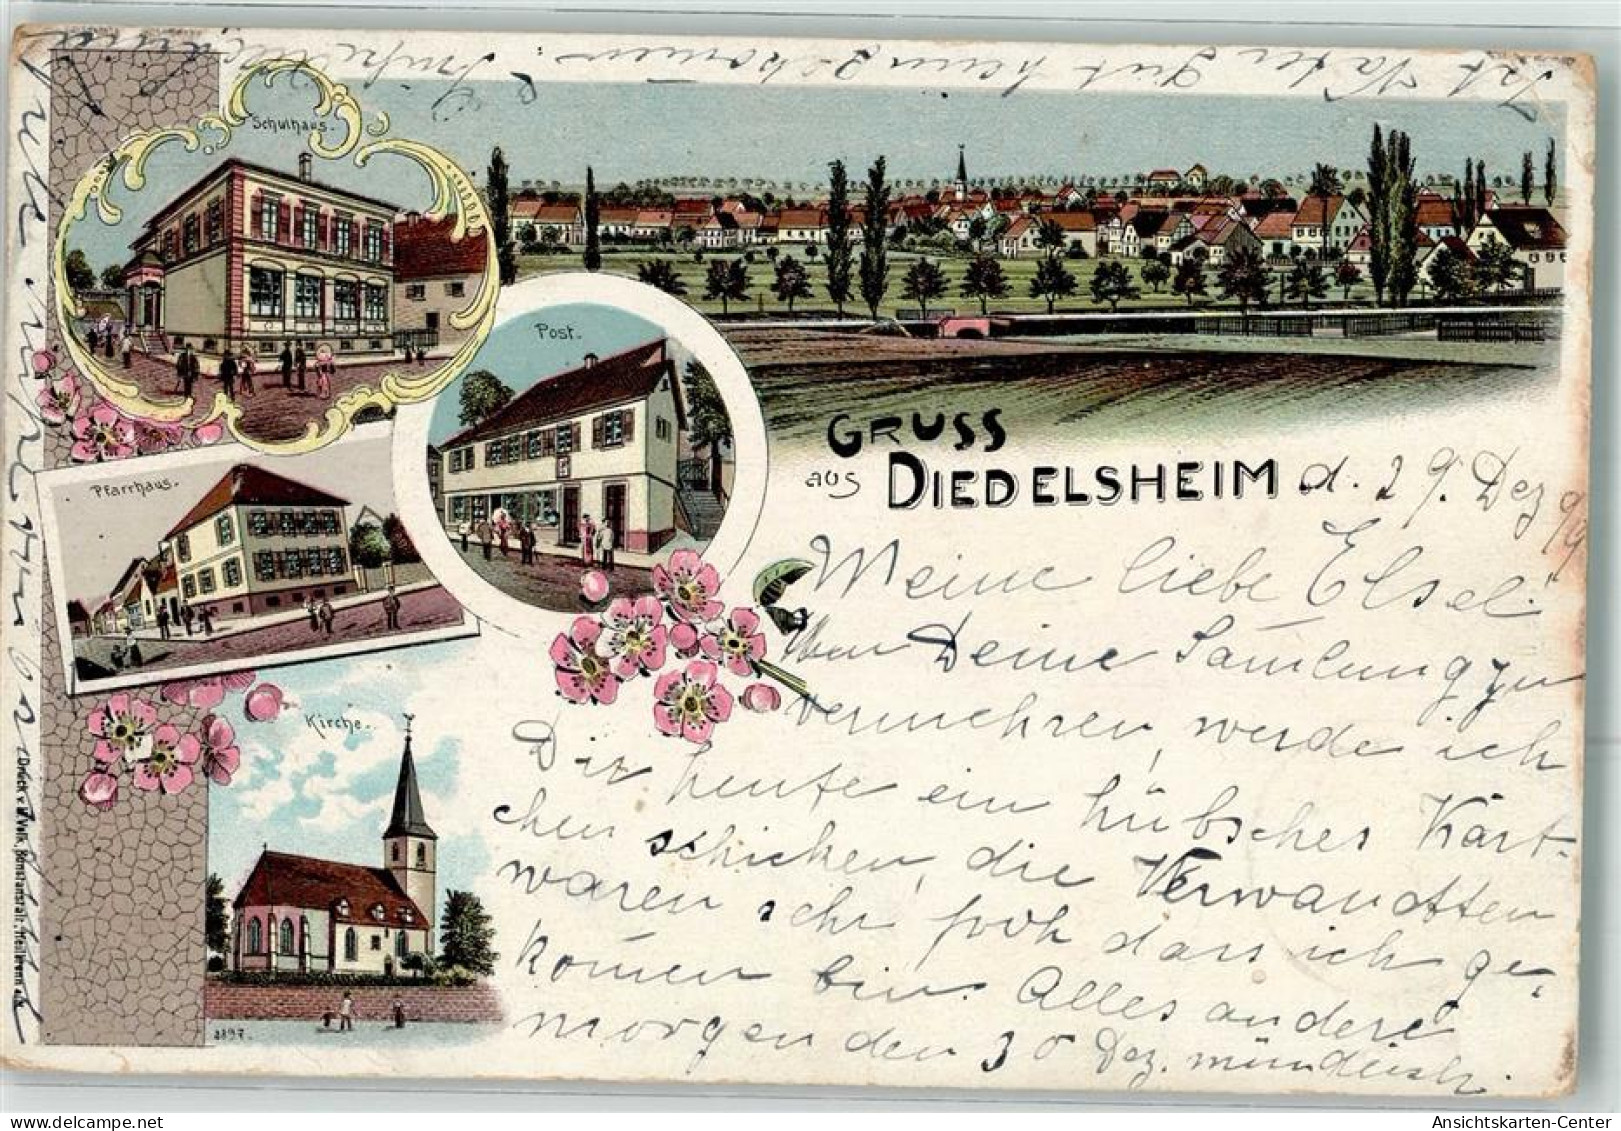 Schulhaus.
Post.
Pfarrhaus.
Kirche.
GRUSS
aus DIEDELSHEIM d. 29. Dez 99
Meine liebe Elsel
Um Deine Samlung zu
vermehren, werde ich
Dir heute ein hübsches Kärt-
chen schicken, die Verwandten
waren sehr froh dass ich ge-
komen bin. Alles andere
morgen den 30 Dez. mündlich.
Ist Vater gut heimgekomen?
Druck v. W. Volk, Konstanstalt, Heilbronn a/N.
1897.
Ansichtskarten-Center